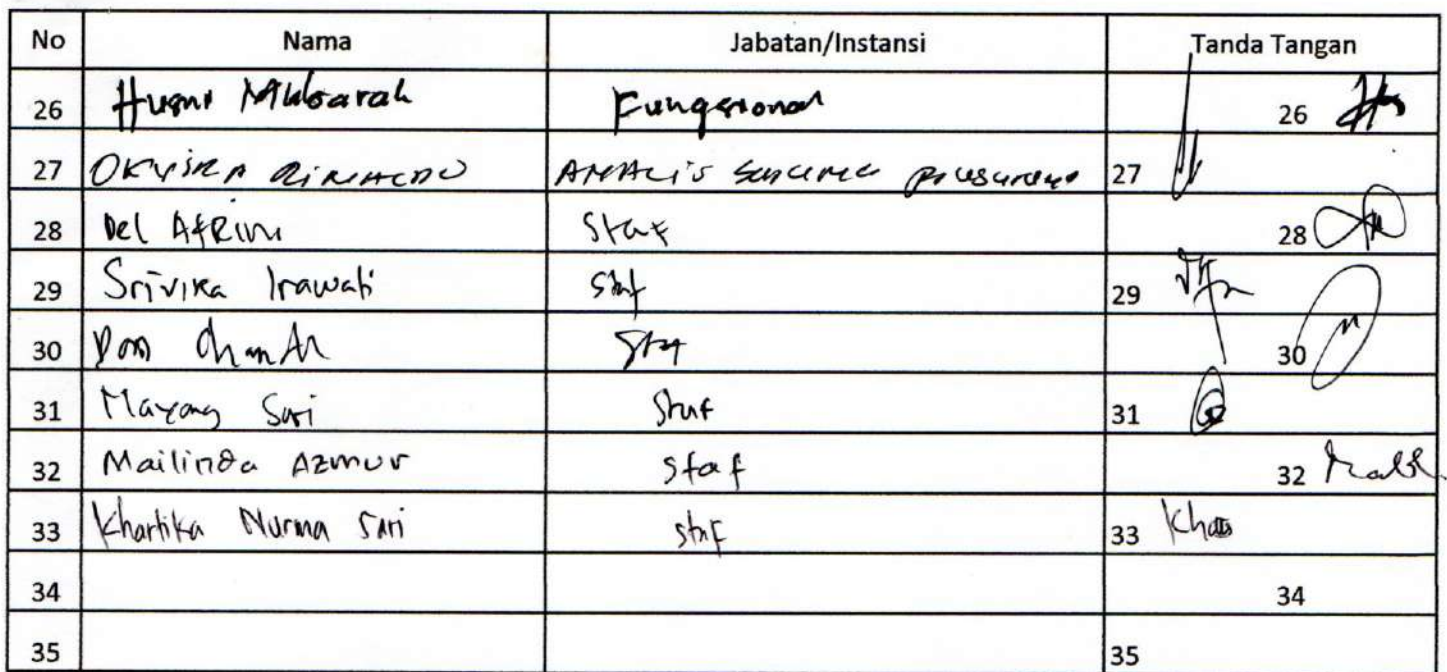 No Nama Jabatan/Instansi Tanda Tangan
26 Husni Mubarak Fungsional 26
27 27
28 Del Afrini Staf 28
29 Srivika Irawati Staf 29
30 30
31 Mayang Sari Staf 31
32 Mailinda Azmur Staf 32
33 Khartika Nurma Sari Staf 33 Kha
34 34
35 35